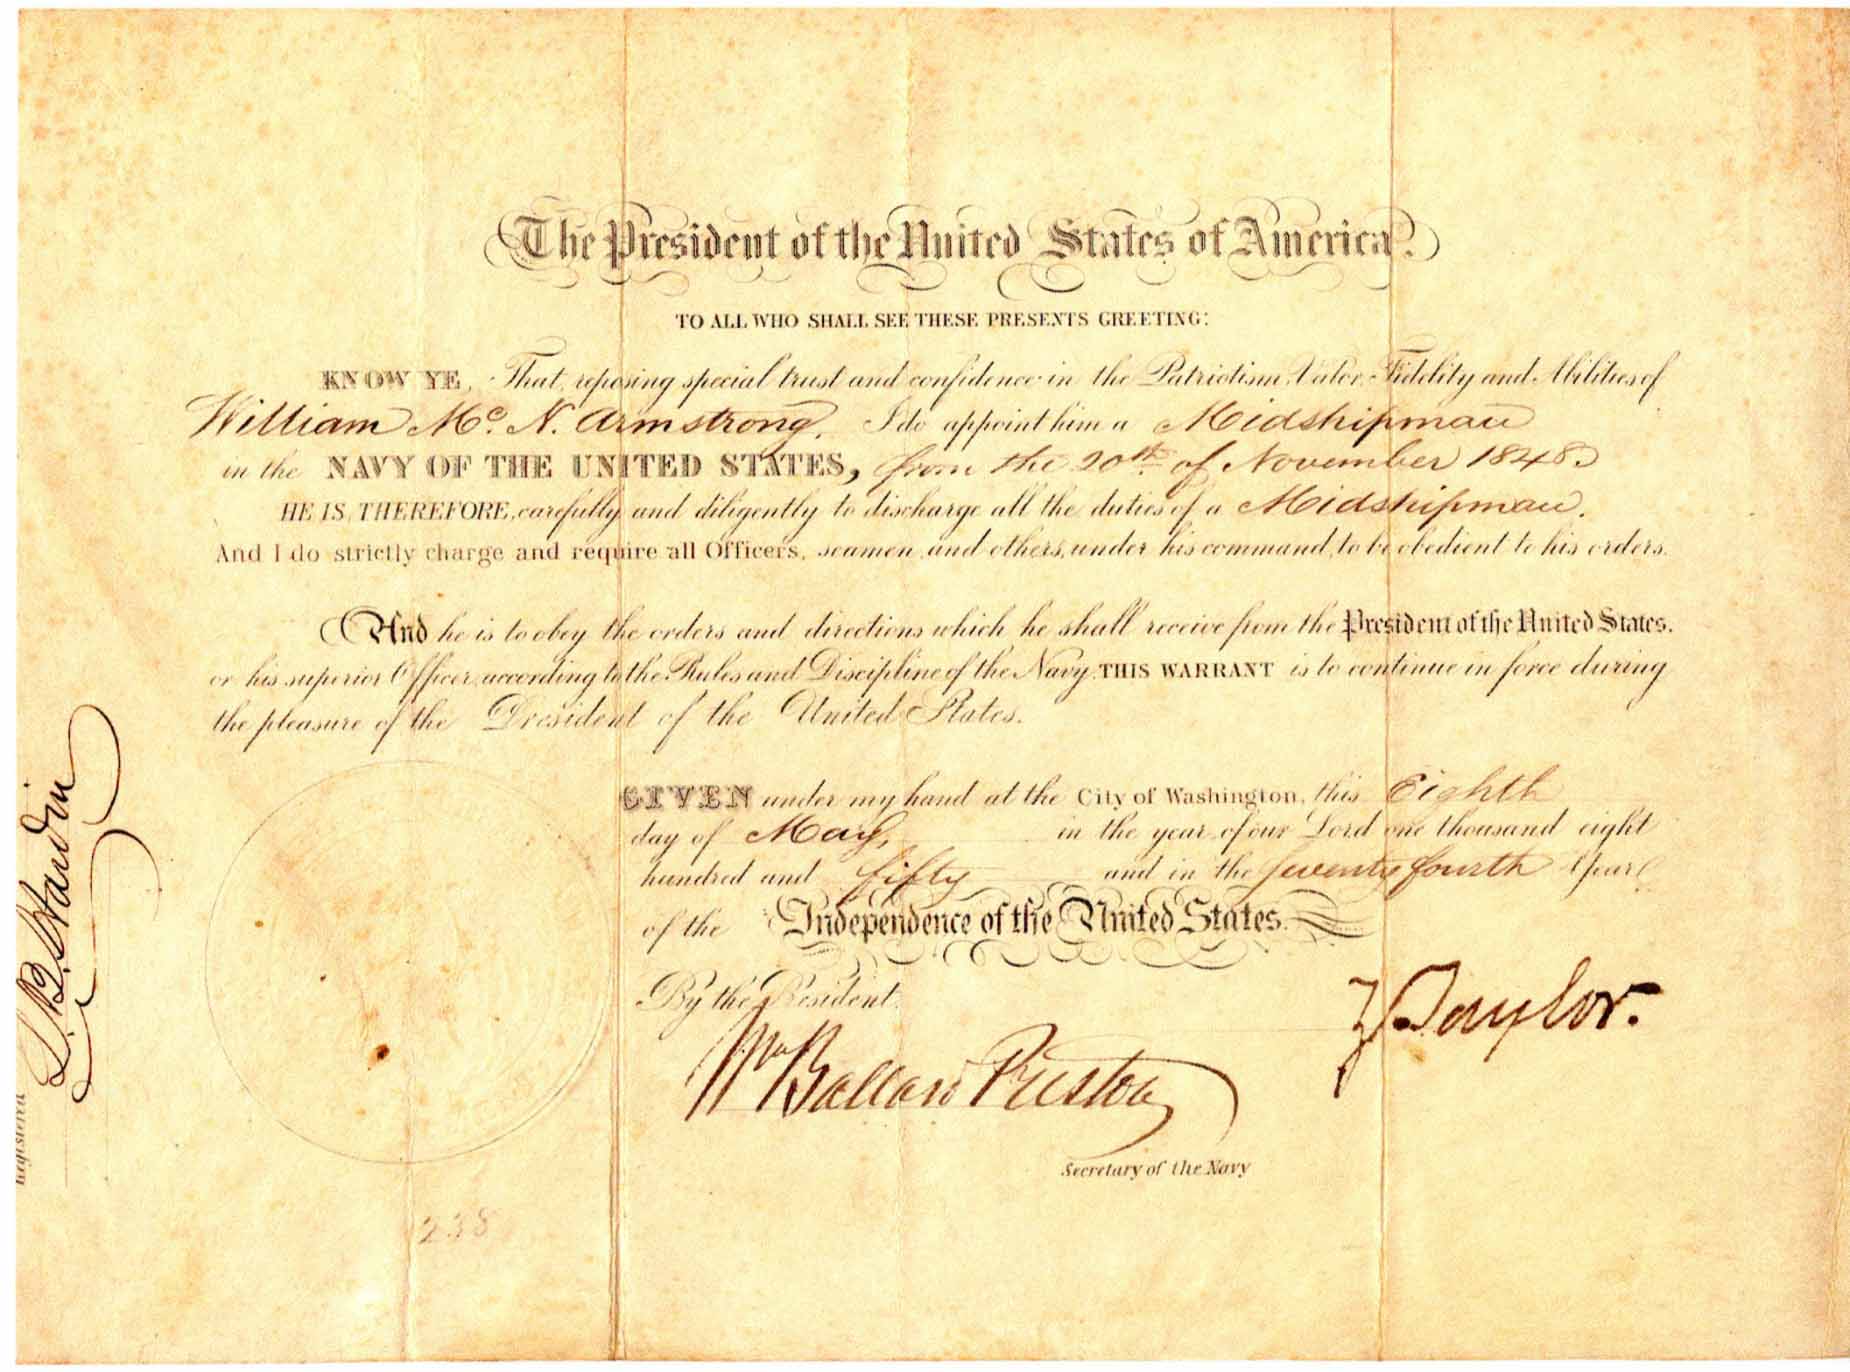 The President of the United States of America.
TO ALL WHO SHALL SEE THESE PRESENTS GREETING:
KNOW YE, That, reposing special trust and confidence in the Patriotism, Valor, Fidelity and Abilities of
William Mc. N. Armstrong, I do appoint him a Midshipman
in the NAVY OF THE UNITED STATES, from the 20th of November 1848.
HE IS, THEREFORE, carefully and diligently to discharge all the duties of a Midshipman.
And I do strictly charge and require all Officers, seamen and others, under his command, to be obedient to his orders.
And he is to obey the orders and directions which he shall receive from the President of the United States.
or his superior Officer, according to the Rules and Discipline of the Navy. THIS WARRANT is to continue in force during
the pleasure of the President of the United States.
GIVEN under my hand at the City of Washington, this Eighth
day of May, in the year of our Lord one thousand eight
hundred and fifty and in the Seventy fourth Year
of the Independence of the United States.
By the President.
Z. Taylor.
Wm Ballard Preston
Secretary of the Navy
Registered
238